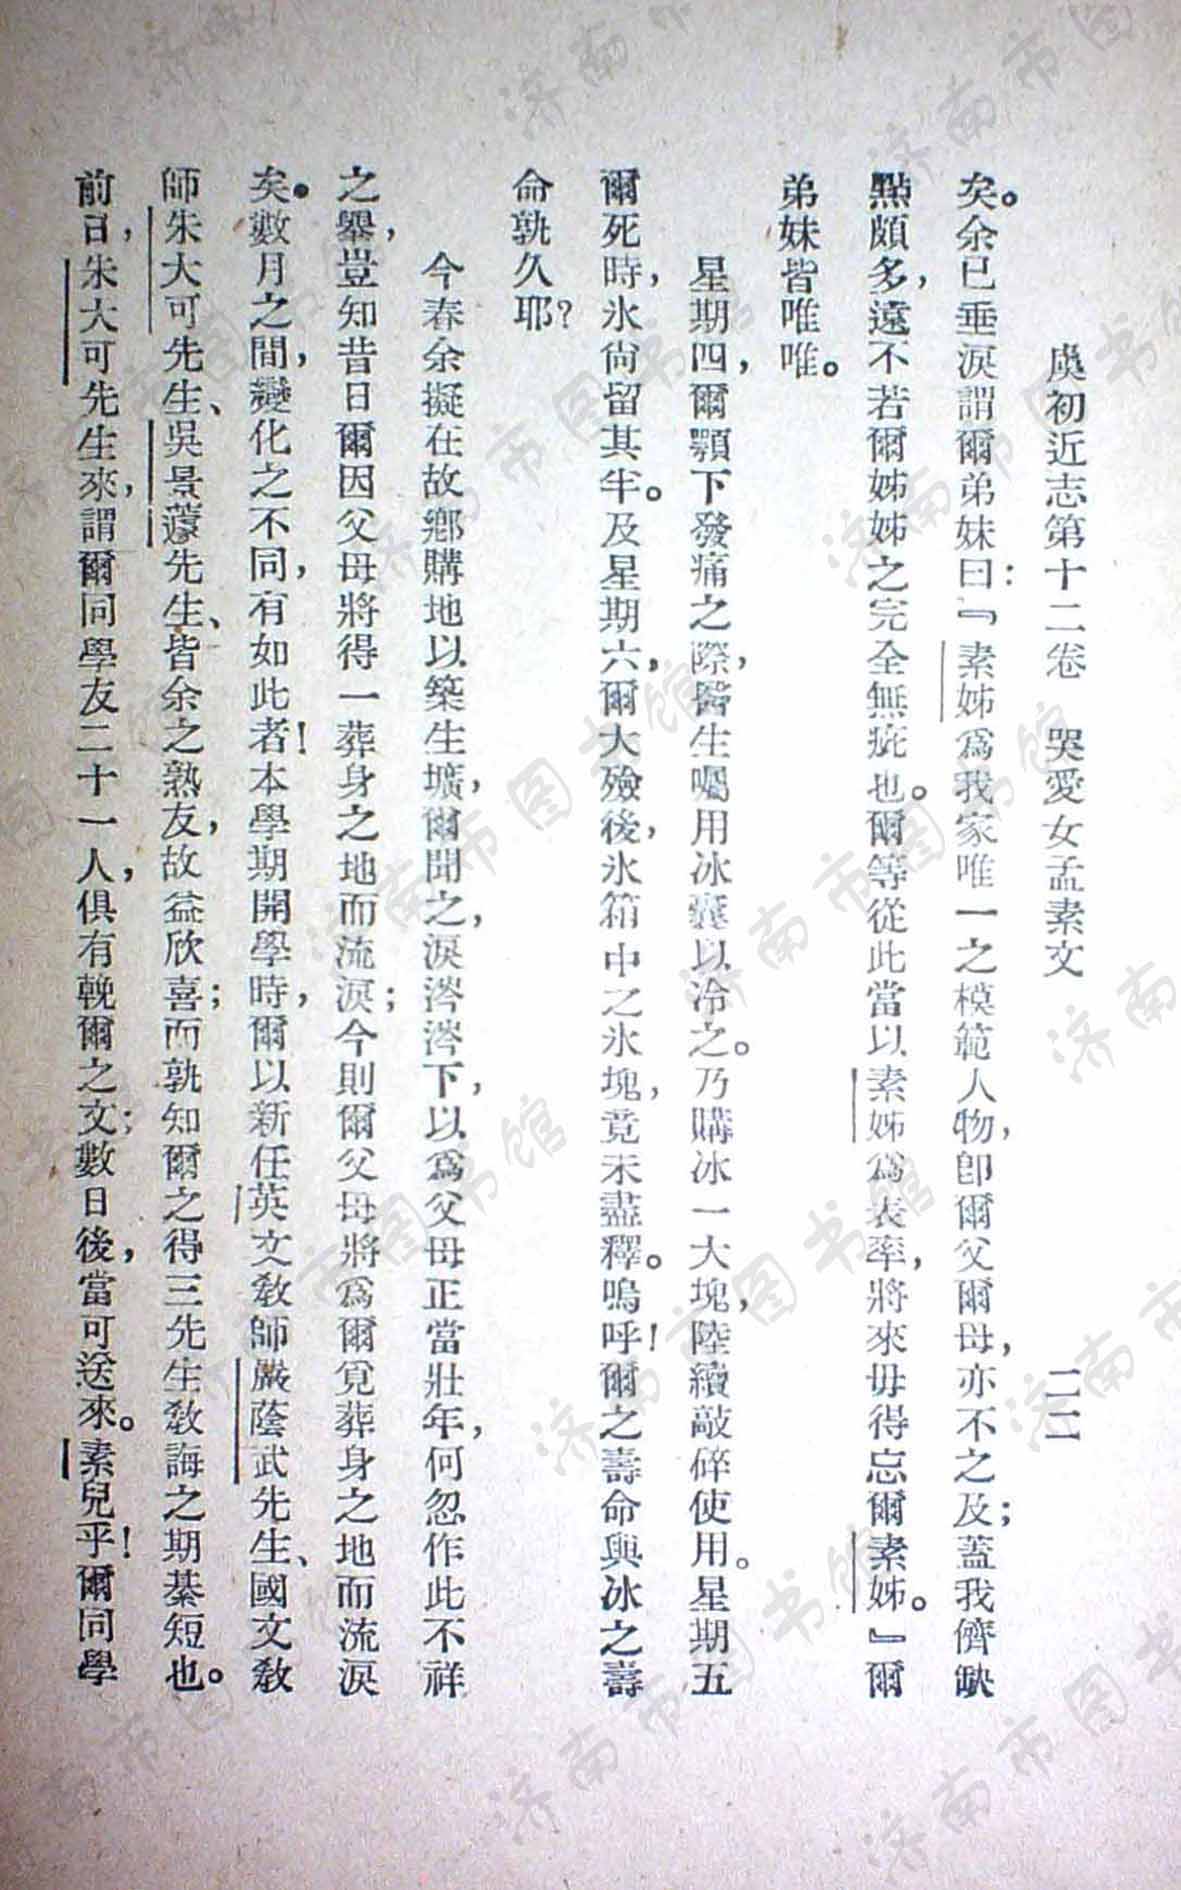 虞初近志第十二卷　哭愛女孟素文　二二
矣。余已垂淚謂爾弟妹曰:『素姊爲我家唯一之模範人物,卽爾父爾母,亦不之及;蓋我儕缺
點頗多,遠不若爾姊姊之完全無疵也。爾等從此當以素姊爲表率,將來毋得忘爾素姊。』爾
弟妹皆唯唯。
星期四,爾顎下發痛之際,醫生囑用冰囊以冷之。乃購冰一大塊,陸續敲碎使用。星期五
爾死時,氷尙留其半。及星期六,爾大殮後,氷箱中之氷塊,竟未盡釋。嗚呼!爾之壽命與冰之壽
命孰久耶?
今春余擬在故鄕購地以築生壙,爾聞之,淚涔涔下,以爲父母正當壯年,何忽作此不祥
之舉,豈知昔日爾因父母將得一葬身之地而流淚;今則爾父母將爲爾覓葬身之地而流淚
矣。數月之間,變化之不同,有如此者!本學期開學時,爾以新任英文敎師嚴蔭武先生、國文敎
師朱大可先生、吳景先生、皆余之熟友,故益欣喜;而孰知爾之得三先生敎誨之期綦短也。
前日,朱大可先生來,謂爾同學友二十一人,俱有輓爾之文;數日後,當可送來。素兒乎!爾同學
济南市图书馆